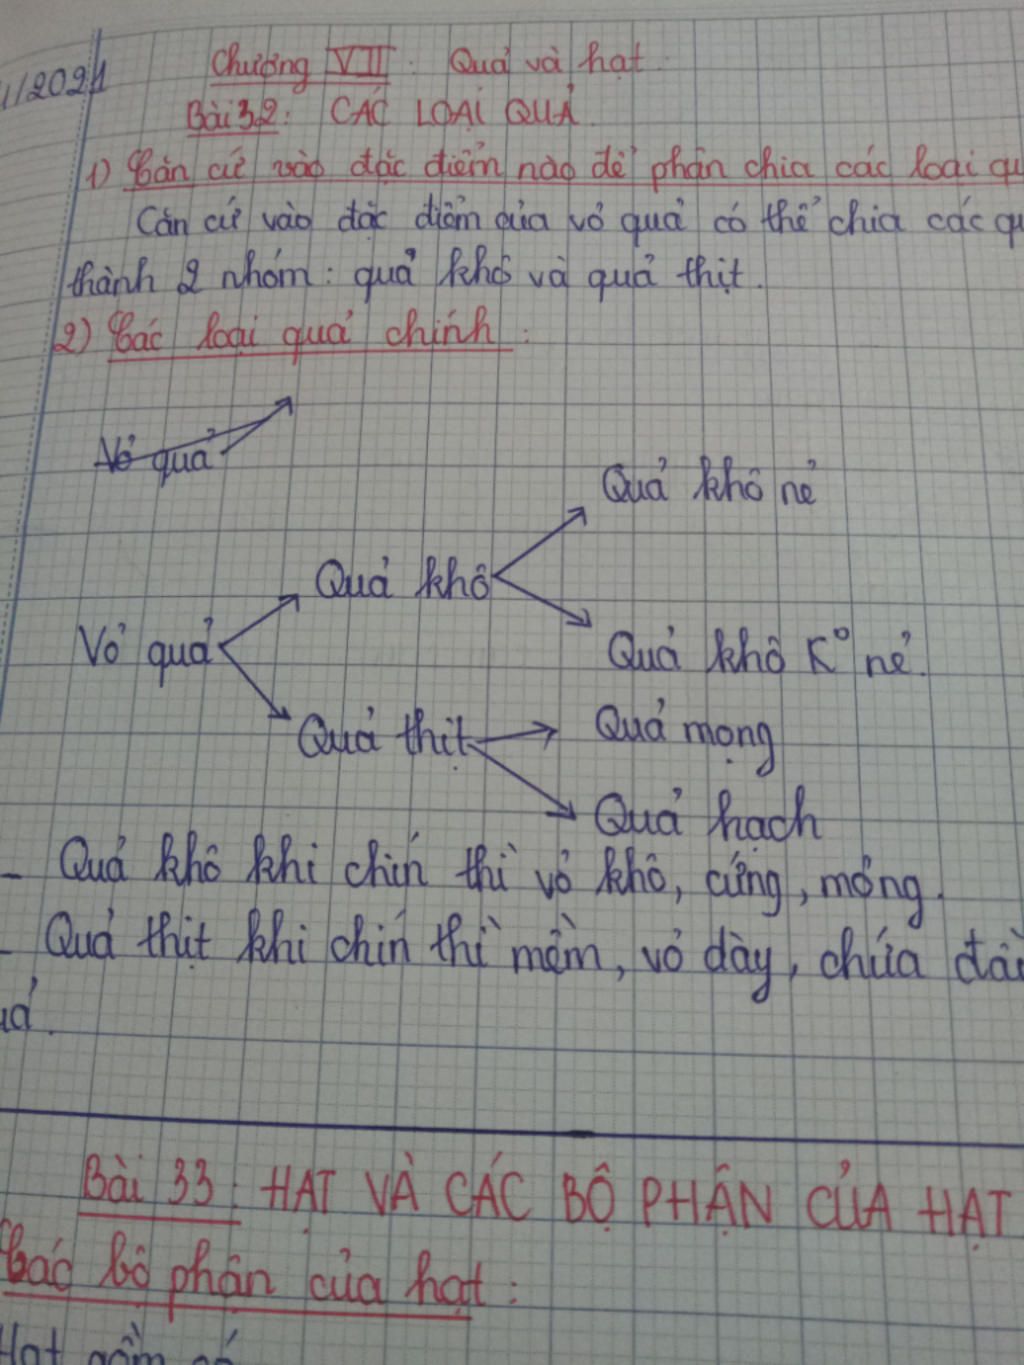 1/2021
Chương VII: Quả và hạt
Bài 32: CÁC LOẠI QUẢ
1) Căn cứ vào đặc điểm nào để phân chia các loại qu
Căn cứ vào đặc điểm của vỏ quả có thể chia các qu
thành 2 nhóm: quả khô và quả thịt.
2) Các loại quả chính:
Vỏ quả
Quả khô nẻ
Quả khô
Vỏ quả
Quả khô K° nẻ.
Quả thịt
Quả mọng
Quả hạch
- Quả khô khi chín thì vỏ khô, cứng, mỏng.
- Quả thịt khi chín thì mềm, vỏ dày, chứa đầ
uả.
Bài 33: HẠT VÀ CÁC BỘ PHẬN CỦA HẠT
Các bộ phận của hạt:
Hạt gồm có